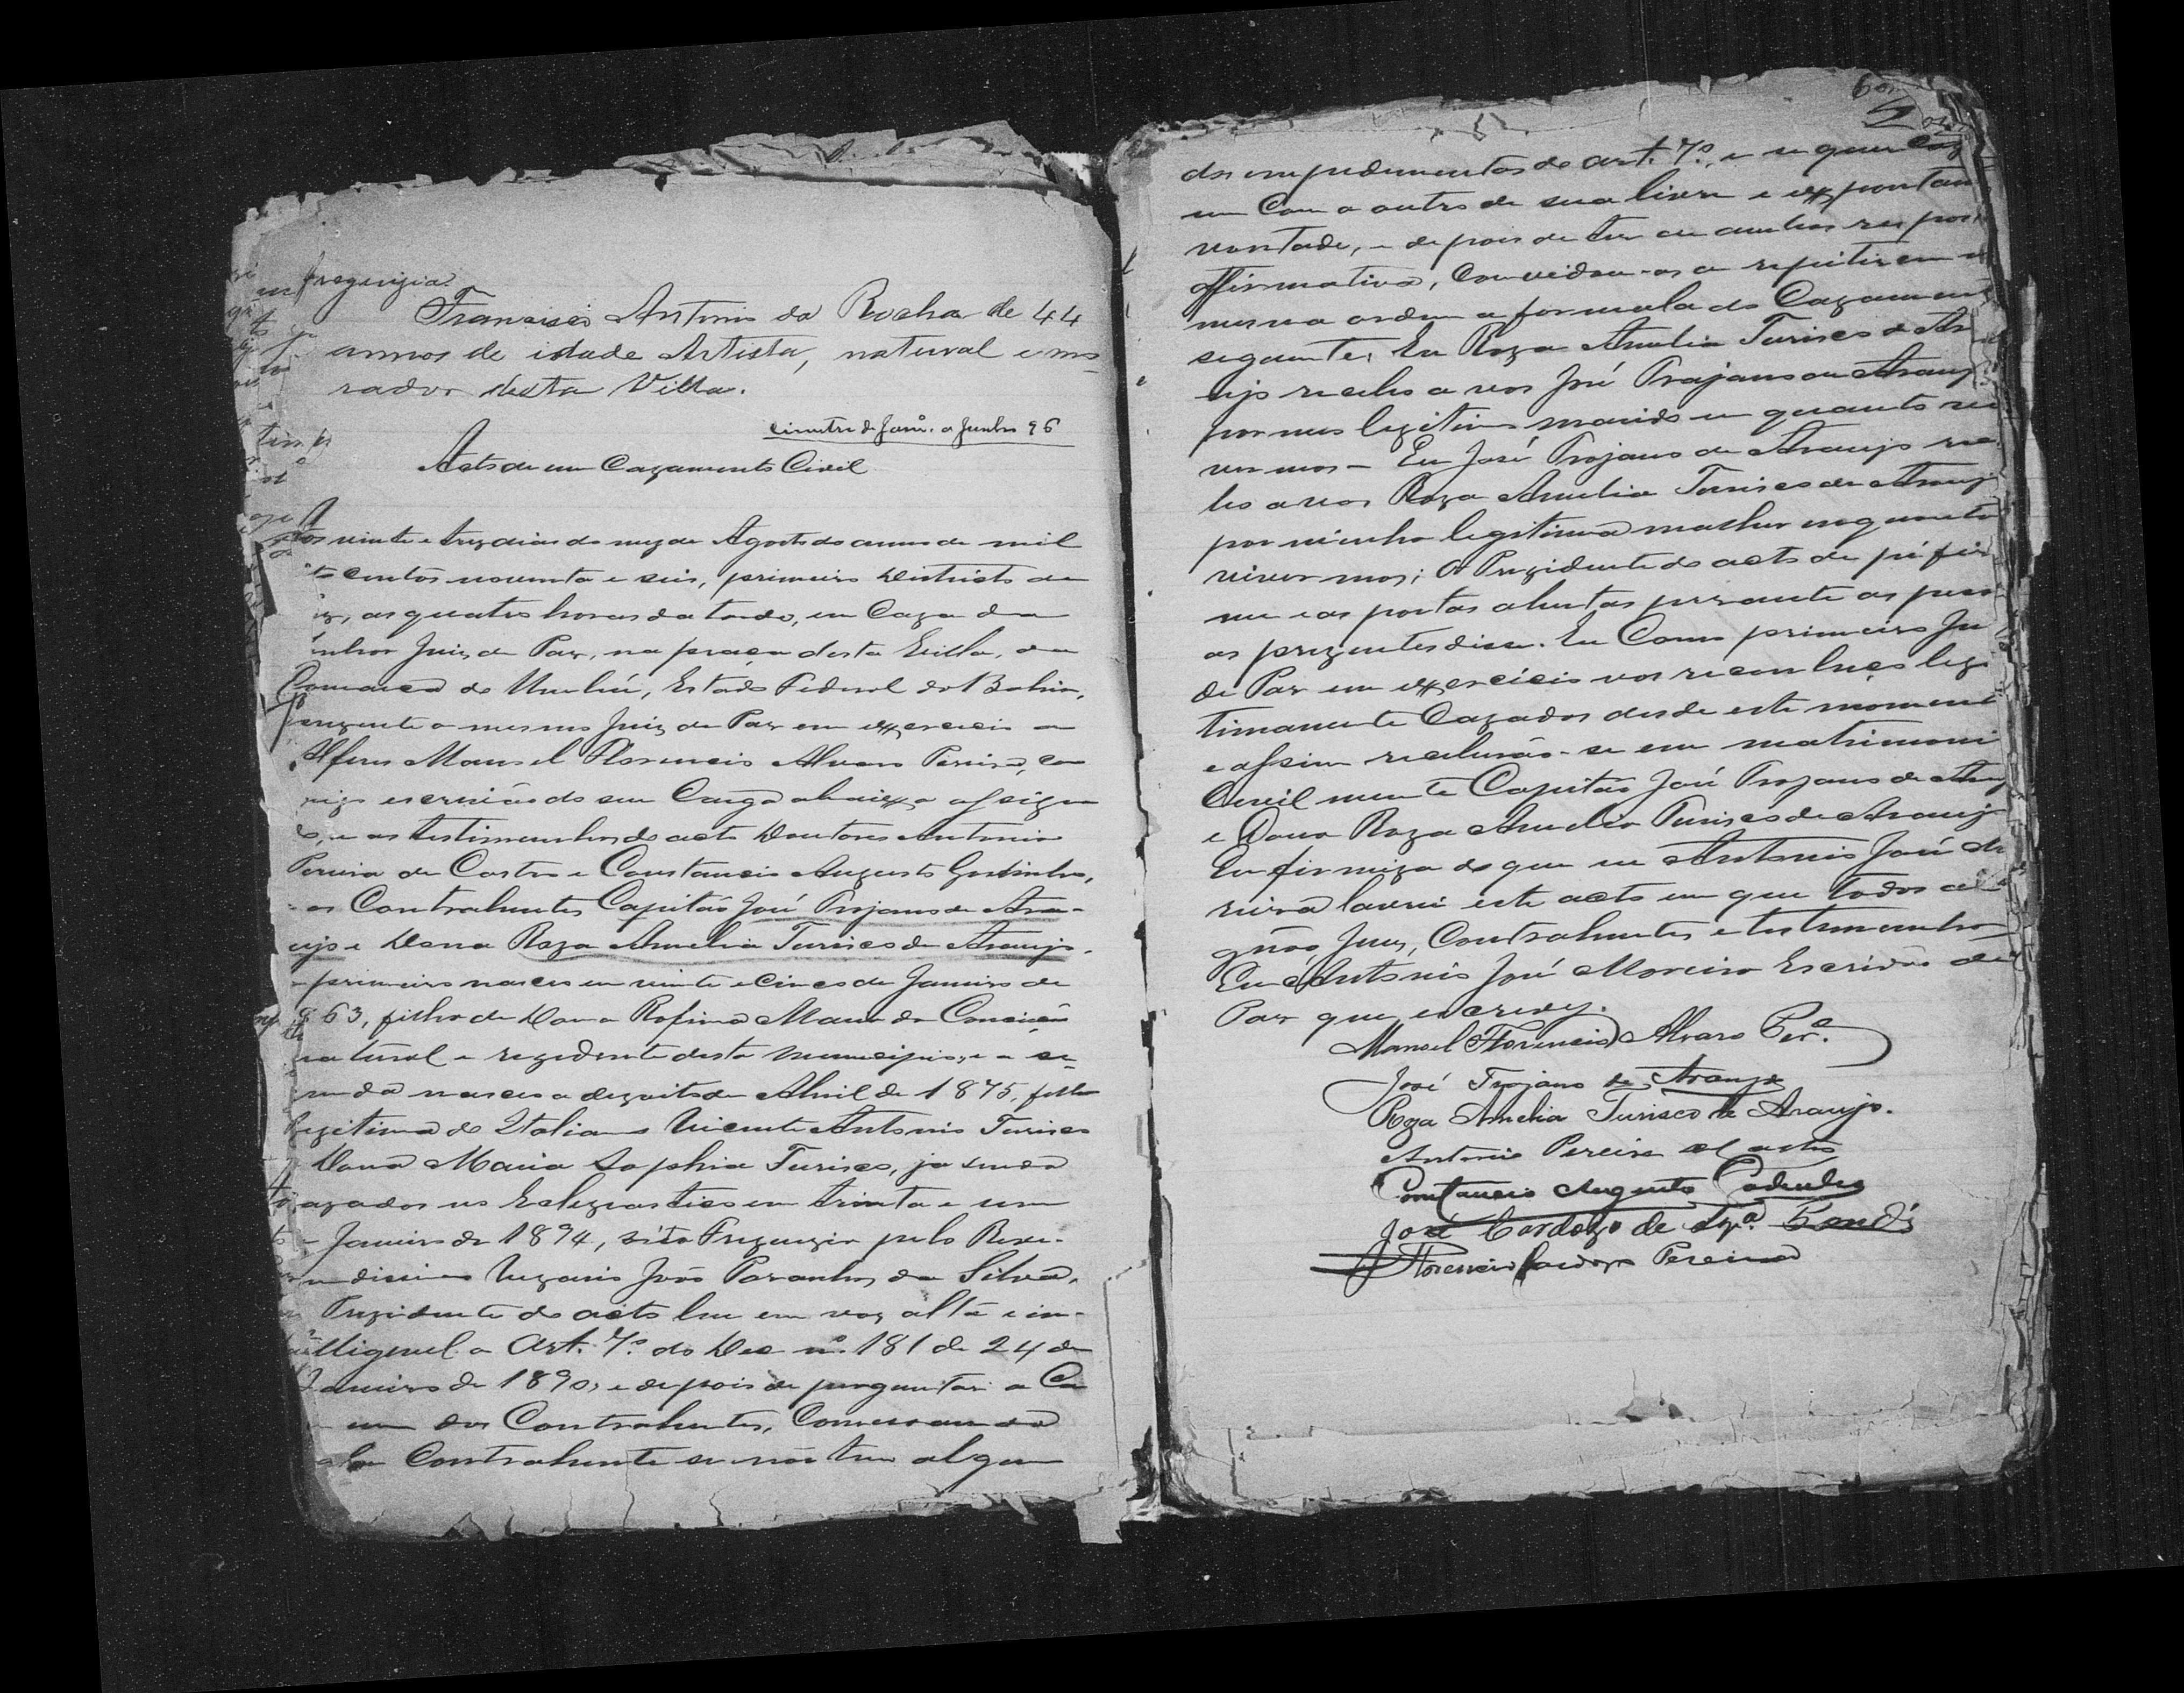 freguizia.
Francisco Antonio da Rocha de 44
annos de idade Artista, natural e mo=
rador desta Villa.
de Janr.o a Junho 96
Acto de um Cazamento Civil
Aos vinte e trez dias do mez de Agosto do anno de mil
centos noventa e seis, primeiro Districto de
as quatro horas da tarde, em Caza do
nhor Juiz de Paz, na praça desta Villa, da
Comarca do Estado Federal da Bahia,
prezente o mesmo Juiz de Paz em exercicio o
Alferes Manoel Florencio Alvaro Pereira, com
migo escrivão do seu Cargo abaixo assigna
do, e as testimunhas do acto Doutores Antonio
Pereira de Castro e Constancio Augusto Godinho,
os Contrahentes Capitão José Trajano de Ara-
ujo e Dona Roza Amelia Turisco de Araujo.
primeiro nasceu em vinte e cinco de Janeiro de
863, filho de Dona Rofina Maria da Conceição
natural e rezidente deste Municipio, e a se-
gunda nasceu a dezoito de Abril de 1875, filha
legitima do Italiano Vicente Antonio Turisco
Dona Maria Sophia Turisco, ja sendo
cazados no Eclegiastico em trinta e um
Janeiro de 1894, nésta Freguzia pelo Reve-
rendissimo Vigario João Paranhos da Silva.
Prezidente do acto leu em voz alta e in-
tilligivel o Art. 7.o do Dec n.o 181 de 24 de
Janeiro de 1890, e depois de perguntar a Ca
um dos Contrahentes, Comessando
pela Contrahente se não tem algum
dos impedimentos do art. 7.o, e se quer Caz
um Com o outro de sua livre e expontan
vontade, e depois de ter de ambos respos
affirmativa, Convidou-os a repitirem n
mesma ordem a formula do Cazament
seguinte, Eu Roza Amelia Turisco de Ar
ujo recebo a vos José Trajano de Arauj
por meu legitimo marido em quanto vi
vermos - Eu José Trajano de Araujo rece
bo a vos Roza Amelia Turisco de Arauj
por minha legitima mulher enquanto
vivermos; O Prezidente do acto de pé fir
me e as portas abertas perante as pesso
as prezentes disse. Eu Como primeiro Ju
de Paz em exercicio vos reconheço legi
timamente Cazados desde este moment
e assim receberão-se em matrimoni
Civil mente Capitão José Trajano de Arauj
e Dona Roza Amelia Turisco de Arauj
Em firmiza do que eu Antonio José Mo
reira lavrei este acto em que todos assi
gnão, Juiz, Contrahentes e testimunhas
Eu Antonio José Moreira Escrivão de
Paz que escrevy.
Manoel Florencio Alvaro Per.a
José Trajano de Araujo
Roza Amelia Turisco de Araujo.
Antonio Pereira de Castro
Constancio Augusto Godinho
José Cardozo de
Florencio Cardozo Pereira